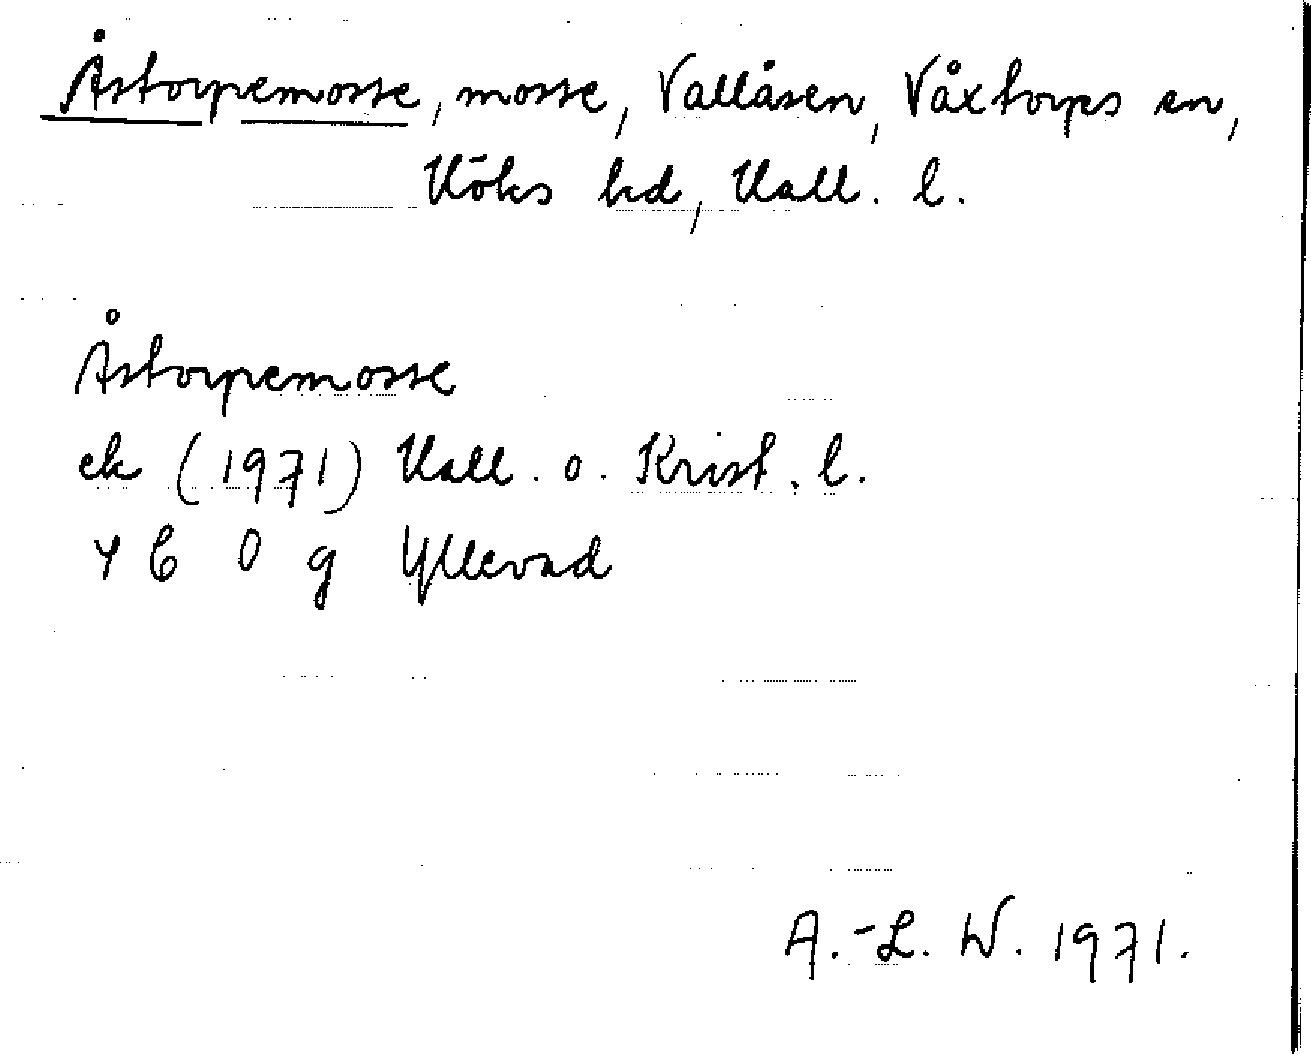 Åstorpemosse, mosse, Vallåsen, Våxtorps sn,
Höks hd, Hall. l.
Åstorpemosse
ek (1971) Hall. o. Krist. l.
4 C 0 g Yllevad
A.-L. W. 1971.